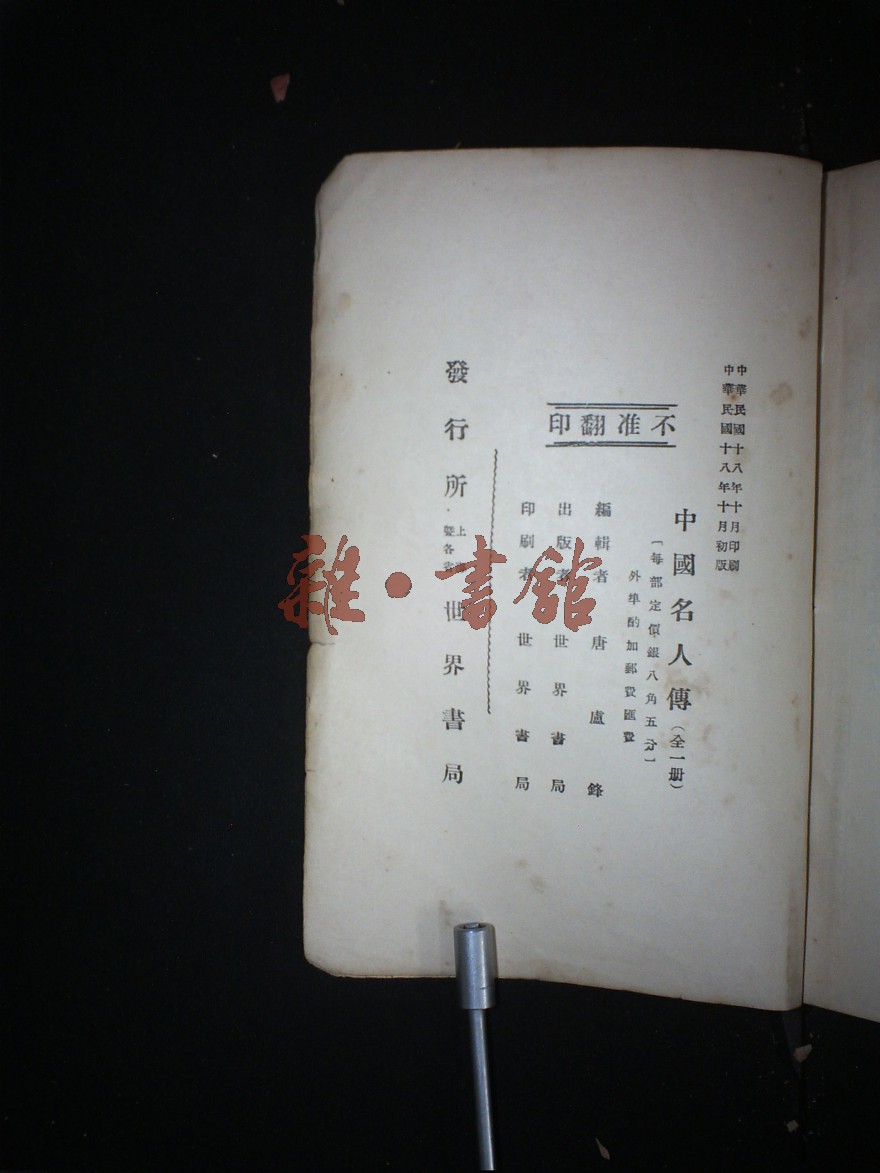 中華民國十八年十月印刷
中華民國十八年十月初版
中國名人傳（全一册）
［每部定價銀八角五分］
外埠酌加郵費匯費
不准翻印
編輯者 唐盧鋒
出版者 世界書局
印刷者 世界書局
發行所 上 暨各省 世界書局
雜·書館